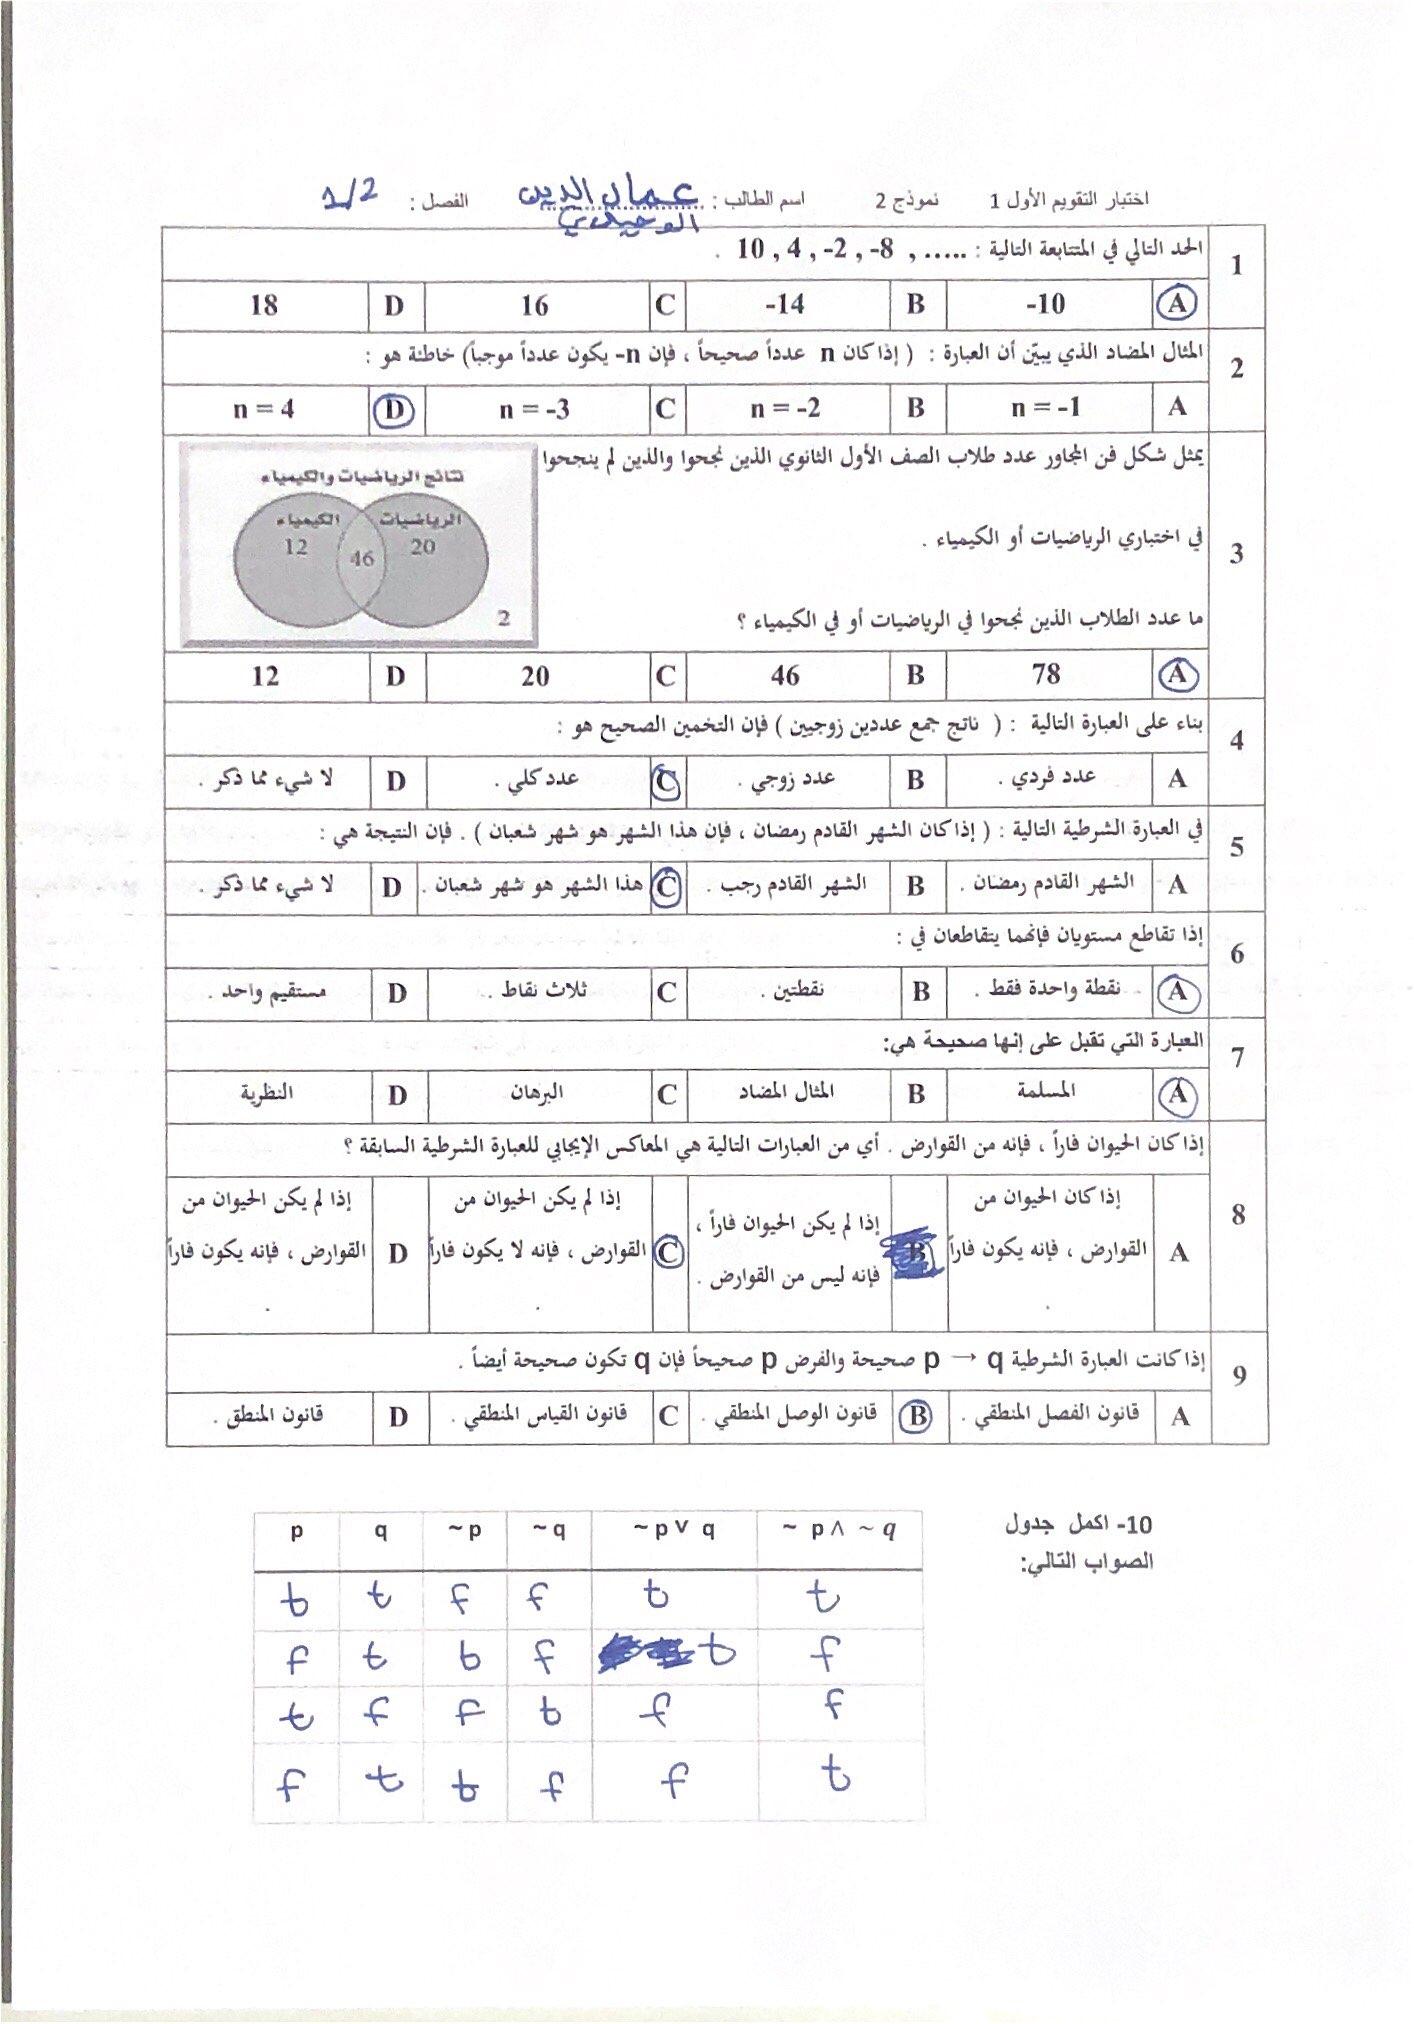 اختبار التقويم الأول 1 نموذج 2 اسم الطالب : عماد الدين الفصل : 1/2
1 الحد التالي في المتتابعة التالية : 10 , 4 , -2 , -8 , ..... .
A -10 B -14 C 16 D 18
2 المثال المضاد الذي يبيّن أن العبارة : ( إذا كان n عدداً صحيحاً ، فإن n- يكون عدداً موجباً) خاطئة هو :
A n = -1 B n = -2 C n = -3 D n = 4
3 يمثل شكل فن المجاور عدد طلاب الصف الأول الثانوي الذين نجحوا والذين لم ينجحوا
في اختباري الرياضيات أو الكيمياء .
ما عدد الطلاب الذين نجحوا في الرياضيات أو في الكيمياء ؟
نتائج الرياضيات والكيمياء
الرياضيات الكيمياء
20 46 12
2
A 78 B 46 C 20 D 12
4 بناء على العبارة التالية : ( ناتج جمع عددين زوجيين ) فإن التخمين الصحيح هو :
A عدد فردي . B عدد زوجي . C عدد كلي . D لا شيء مما ذكر .
5 في العبارة الشرطية التالية : ( إذا كان الشهر القادم رمضان ، فإن هذا الشهر هو شهر شعبان ) . فإن النتيجة هي :
A الشهر القادم رمضان . B الشهر القادم رجب . C هذا الشهر هو شهر شعبان . D لا شيء مما ذكر .
6 إذا تقاطع مستويان فإنهما يتقاطعان في :
A نقطة واحدة فقط . B نقطتين . C ثلاث نقاط . D مستقيم واحد .
7 العبارة التي تقبل على إنها صحيحة هي:
A المسلمة B المثال المضاد C البرهان D النظرية
8 إذا كان الحيوان فاراً ، فإنه من القوارض . أي من العبارات التالية هي المعاكس الإيجابي للعبارة الشرطية السابقة ؟
A إذا كان الحيوان من القوارض ، فإنه يكون فاراً . B إذا لم يكن الحيوان فاراً ، فإنه ليس من القوارض . C إذا لم يكن الحيوان من القوارض ، فإنه لا يكون فاراً . D إذا لم يكن الحيوان من القوارض ، فإنه يكون فاراً .
9 إذا كانت العبارة الشرطية p → q صحيحة والفرض p صحيحاً فإن q تكون صحيحة أيضاً .
A قانون الفصل المنطقي . B قانون الوصل المنطقي . C قانون القياس المنطقي . D قانون المنطق .
10- اكمل جدول
الصواب التالي:
p q ~p ~q ~p∨ q ~ p∧ ~q
t t f f t t
f t t f t f
t f f t f f
f t t f f t